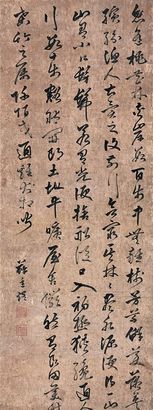 逢桃花林夾岸數百步中無雜樹芳草鮮美落英
繽紛漁人甚異之復前行窮其林林盡水源便得一山
山有小口髣髴若有光便捨船從口入初極狹纔通人
行數十步豁然開朗土地平曠屋舍儼然有良田美
桑竹之屬阡陌交通雞犬相